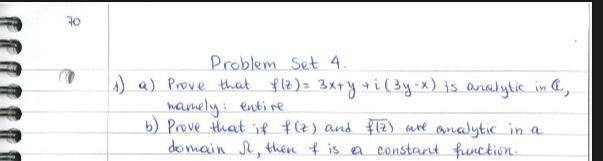 70
Problem Set 4.
1) a) Prove that f(z) = 3x+y + i(3y-x) is analytic in ℂ,
namely: entire
b) Prove that if f(z) and \overline{f(z)} are analytic in a
domain Ω, then f is a constant function.